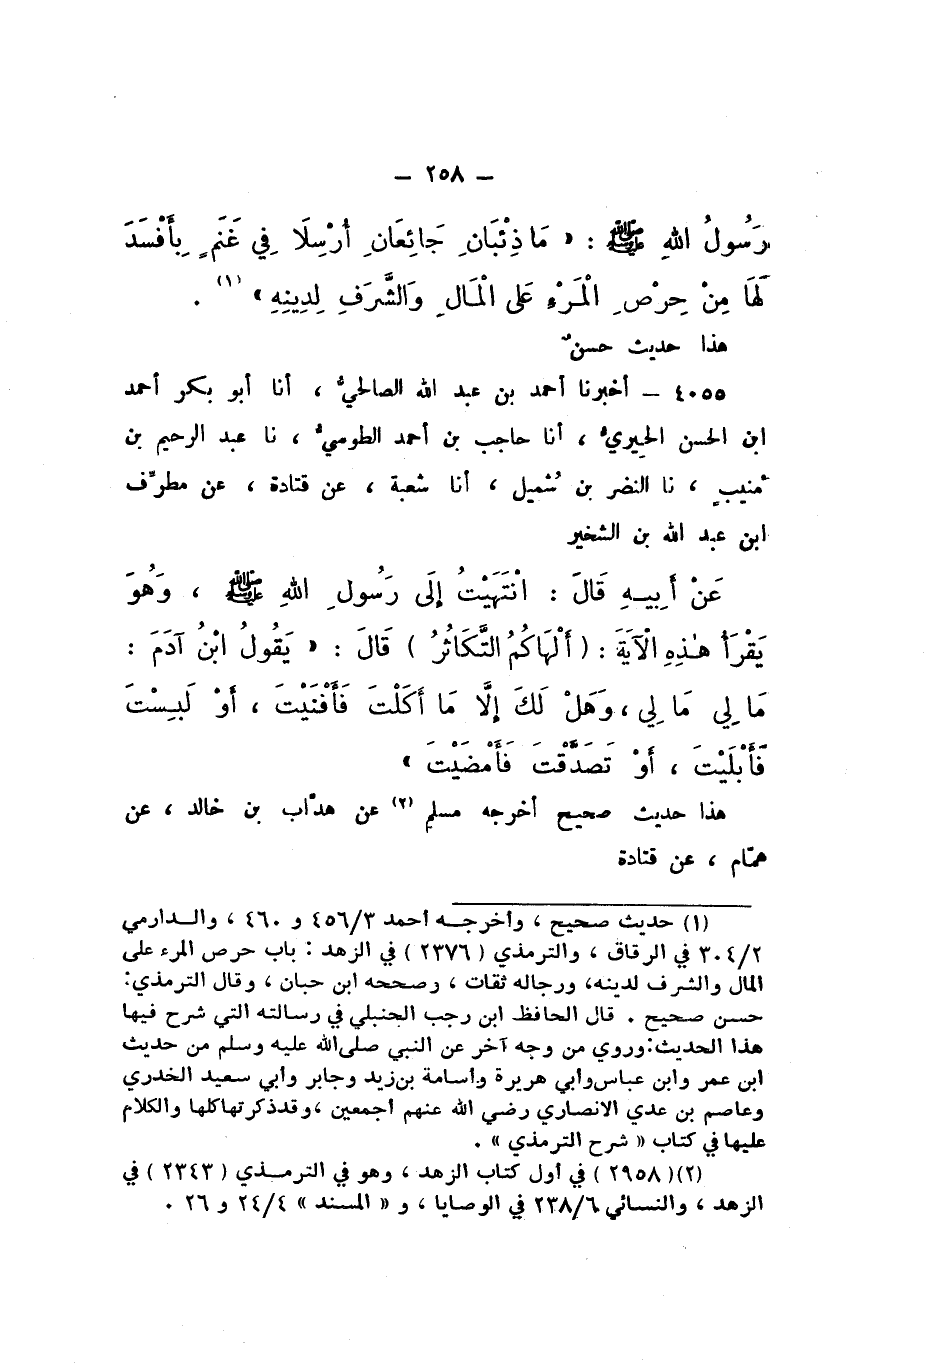 – ٢٥٨ –
رَسُولُ اللهِ ﷺ : « مَا ذِئْبَانِ جَائِعَانِ أُرْسِلَا فِي غَنَمٍ بِأَفْسَدَ
لَهَا مِنْ حِرْصِ الْمَرْءِ عَلَى الْمَالِ وَالشَّرَفِ لِدِينِهِ » (١) .
هذا حديث حسنٌ
٤٠٥٥ – أخبرنا أحمد بن عبد الله الصالحيُّ ، أنا أبو بكر أحمد
ابن الحسن الحِيريُّ ، أنا حاجب بن أحمد الطوسيُّ ، نا عبد الرحيم بن
مُنيبٍ ، نا النضر بن شُميل ، أنا شعبة ، عن قتادة ، عن مطرِّف
ابن عبد الله بن الشخير
عَنْ أَبِيهِ قَالَ : انْتَهَيْتُ إِلَى رَسُولِ اللهِ ﷺ ، وَهُوَ
يَقْرَأُ هٰذِهِ الْآيَةَ : ( أَلْهَاكُمُ التَّكَاثُرُ ) قَالَ : « يَقُولُ ابْنُ آدَمَ :
مَا لِي مَا لِي ، وَهَلْ لَكَ إِلَّا مَا أَكَلْتَ فَأَفْنَيْتَ ، أَوْ لَبِسْتَ
فَأَبْلَيْتَ ، أَوْ تَصَدَّقْتَ فَأَمْضَيْتَ »
هذا حديث صحيح أخرجه مسلم (٢) عن هدَّاب بن خالد ، عن
همَّام ، عن قتادة
(١) حديث صحيح ، وأخرجه أحمد ٤٥٦/٣ و ٤٦٠ ، والدارمي
٣٠٤/٢ في الرقاق ، والترمذي ( ٢٣٧٦ ) في الزهد : باب حرص المرء على
المال والشرف لدينه، ورجاله ثقات ، وصححه ابن حبان ، وقال الترمذي:
حسن صحيح . قال الحافظ ابن رجب الحنبلي في رسالته التي شرح فيها
هذا الحديث:وروي من وجه آخر عن النبي صلى الله عليه وسلم من حديث
ابن عمر وابن عباس وأبي هريرة وأسامة بن زيد وجابر وأبي سعيد الخدري
وعاصم بن عدي الانصاري رضي الله عنهم أجمعين ،وقد ذكرتها كلها والكلام
عليها في كتاب « شرح الترمذي » .
(٢)( ٢٩٥٨ ) في أول كتاب الزهد ، وهو في الترمذي ( ٢٣٤٣ ) في
الزهد ، والنسائي ٢٣٨/٦ في الوصايا ، و « المسند » ٢٤/٤ و ٢٦ .